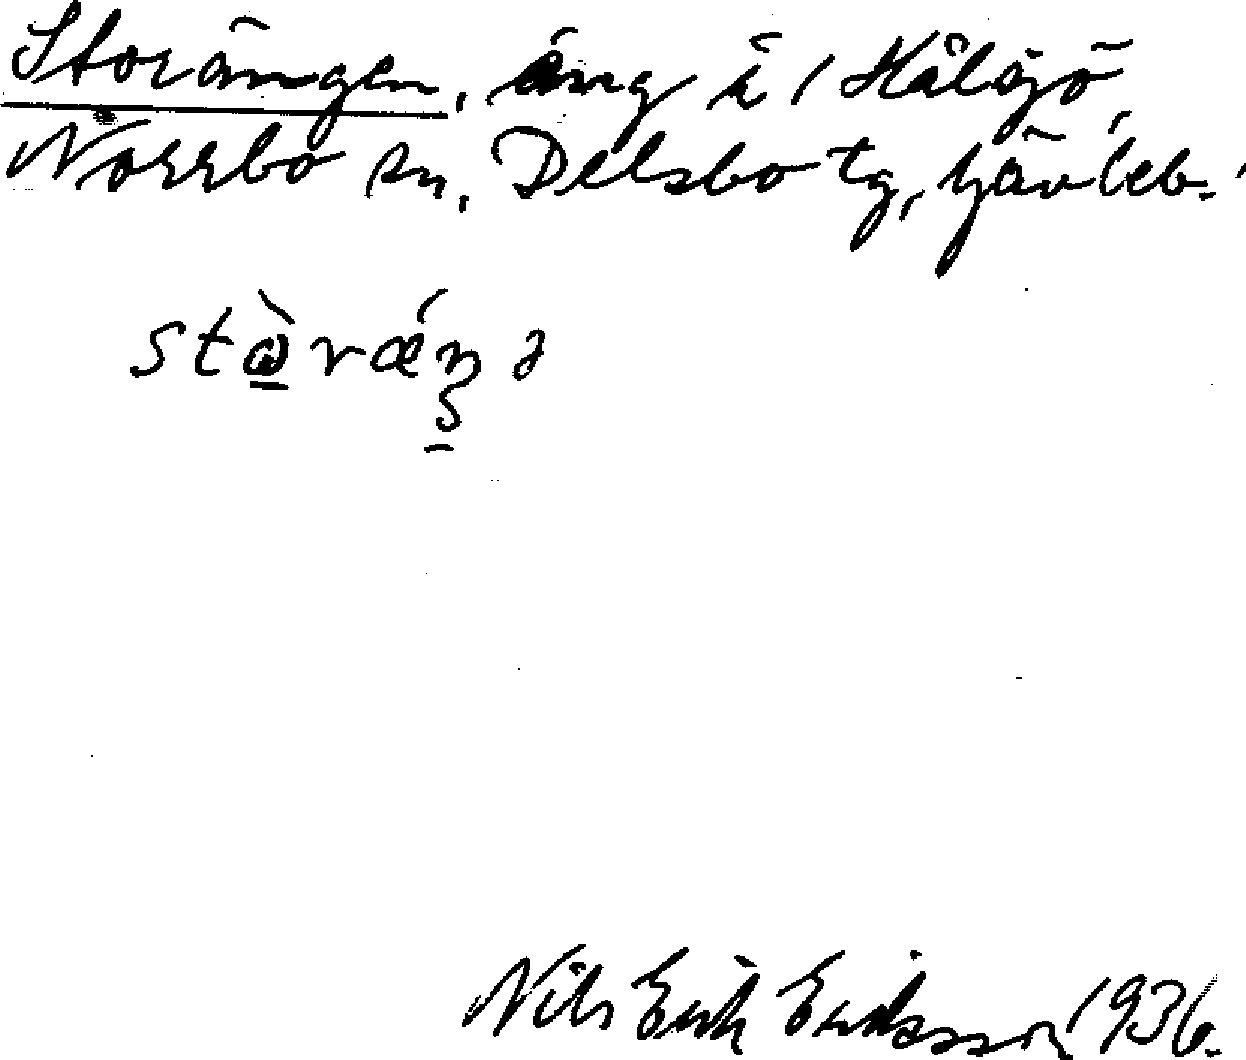 Storängen, äng i Hålsjö,
Norrbo sn, Delsbo tg, Gävleb.
Nils Erik Eriksson 1936.